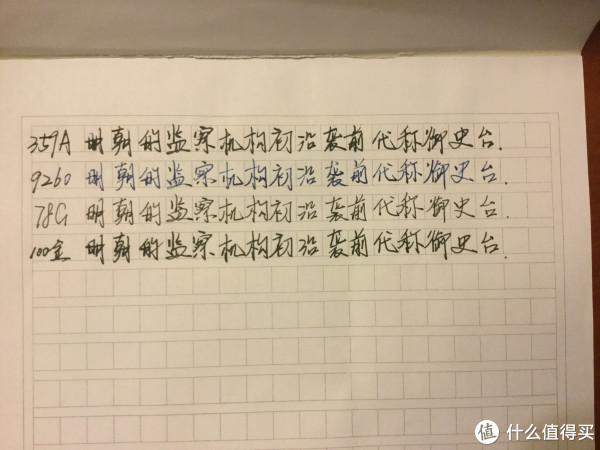 359A 明朝的监察机构初沿袭前代称御史台.
9260 明朝的监察机构初沿袭前代称御史台.
78G 明朝的监察机构初沿袭前代称御史台.
100金 明朝的监察机构初沿袭前代称御史台.
值 什么值得买